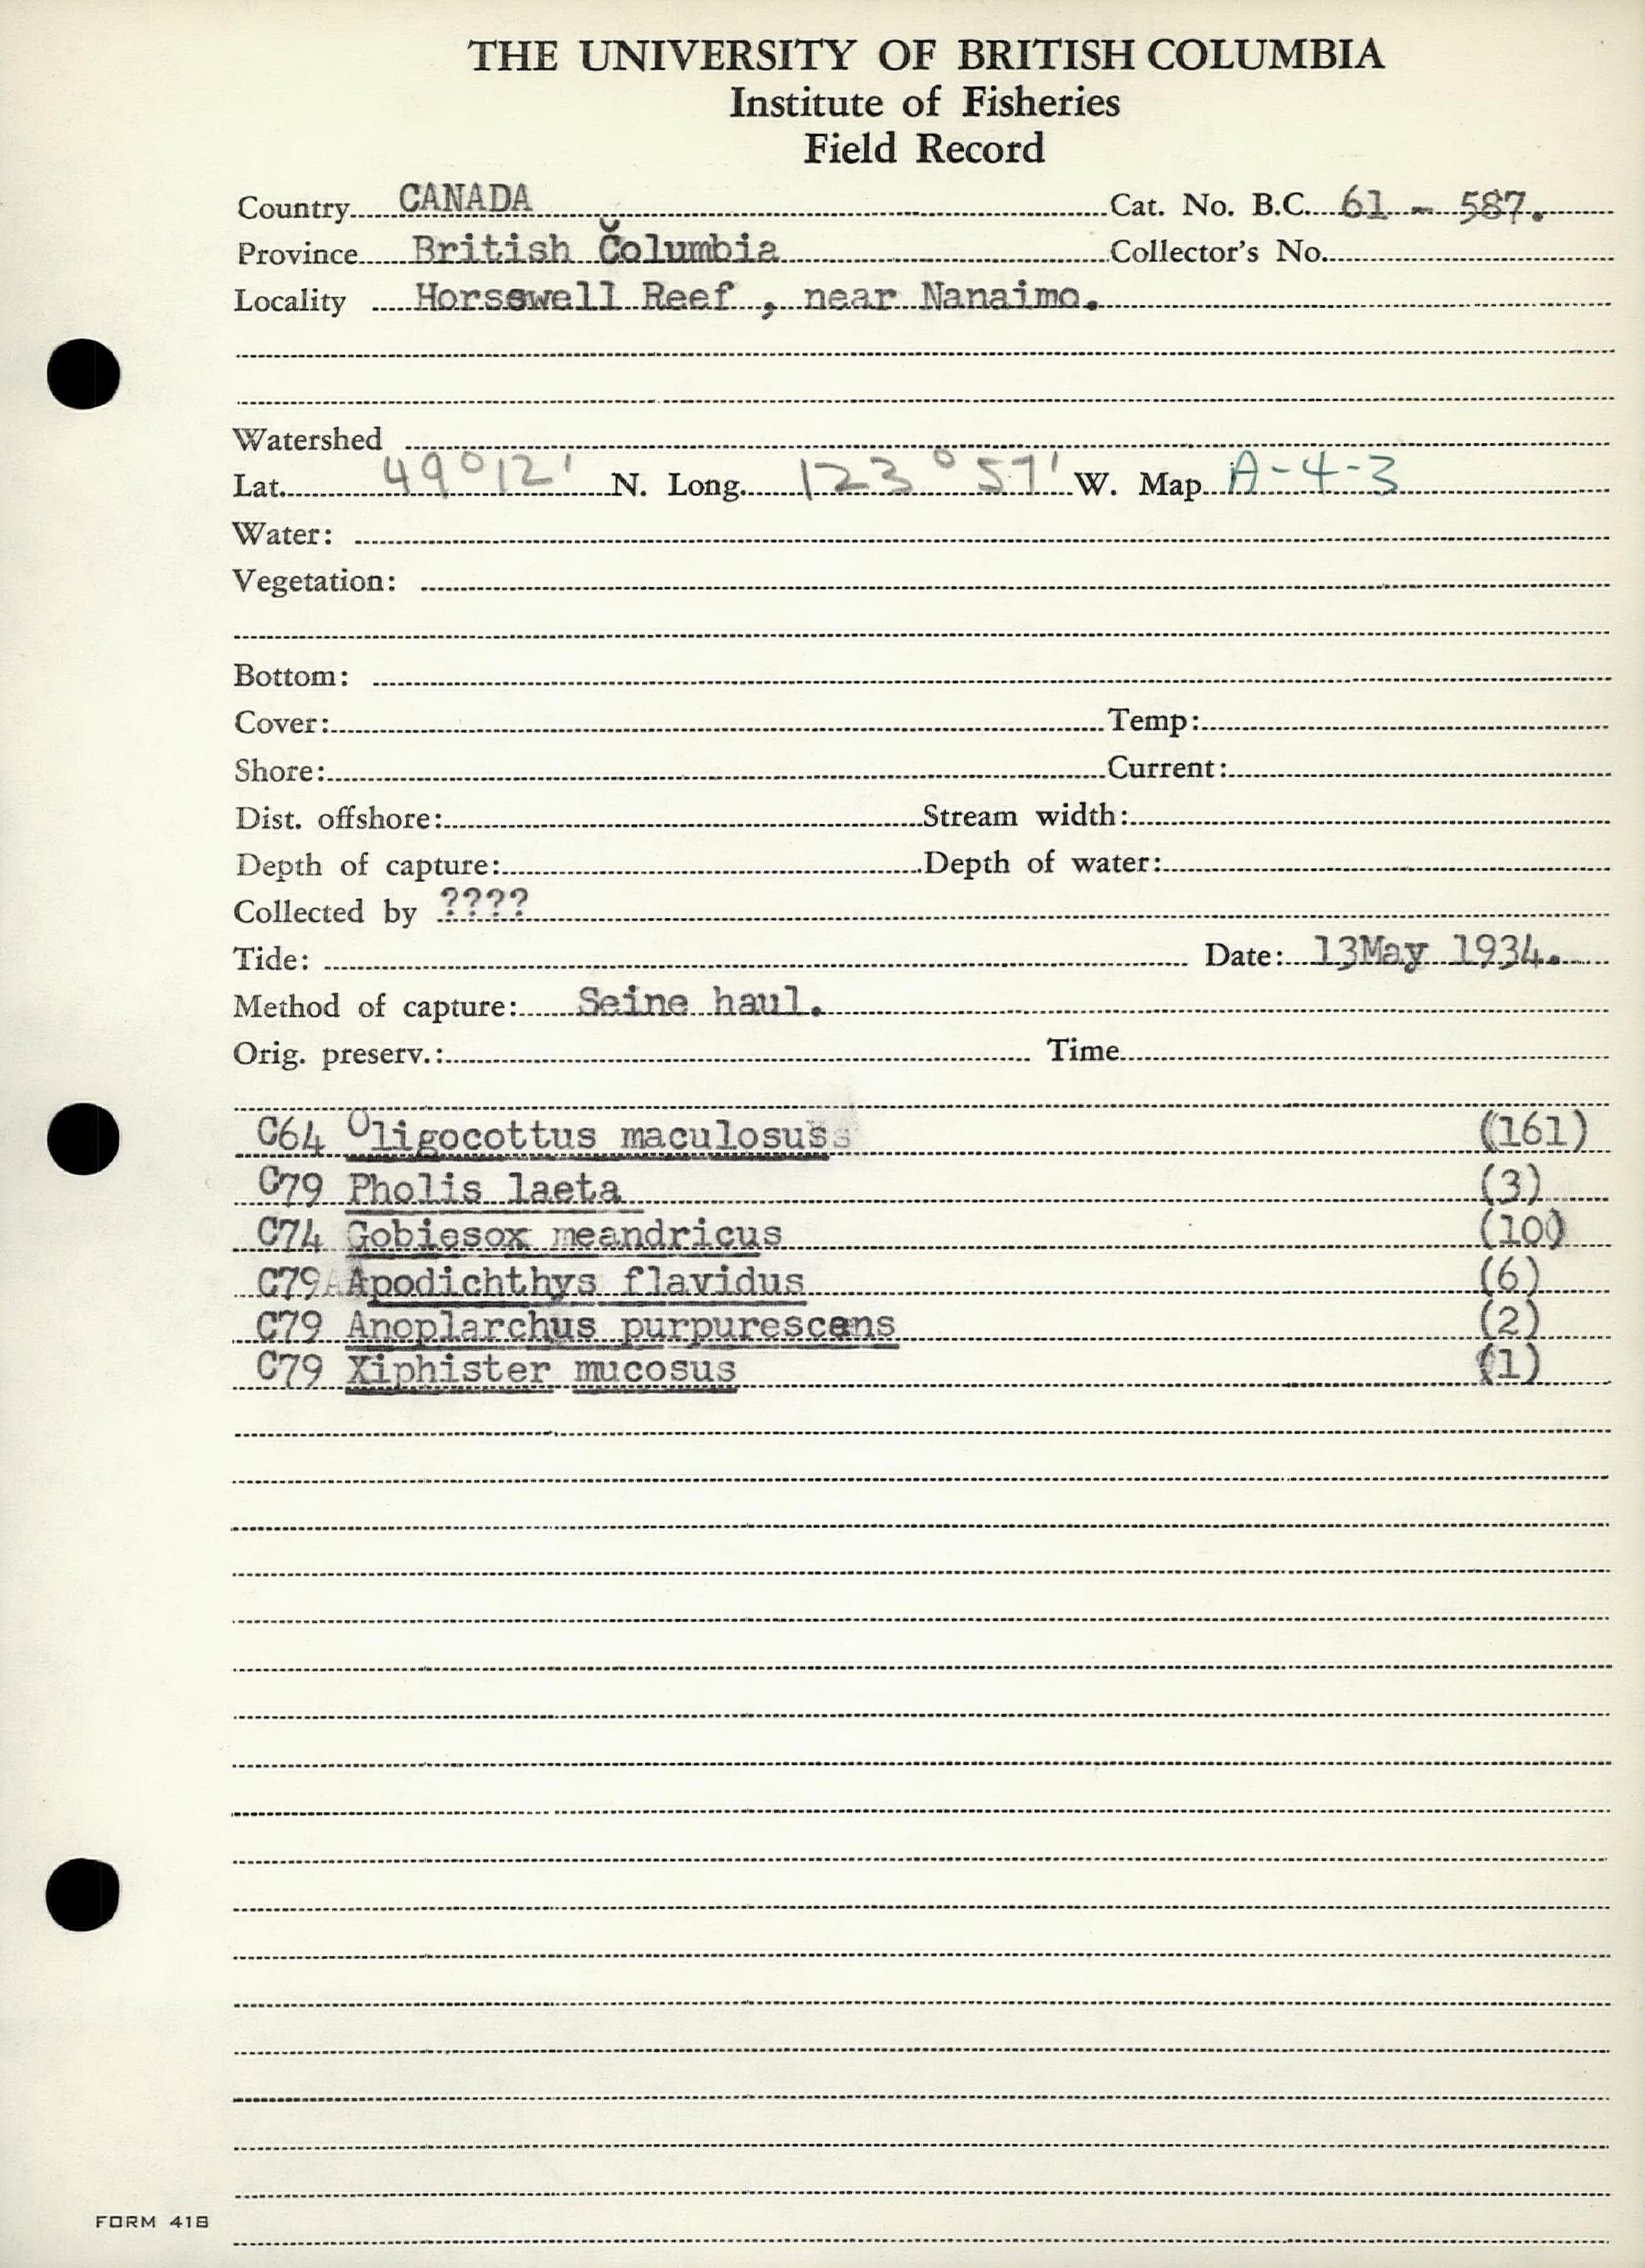 THE UNIVERSITY OF BRITISH COLUMBIA
Institute of Fisheries
Field Record
Country CANADA Cat. No. B.C. 61 - 587.
Province British Columbia Collector's No.
Locality Horsswell Reef , near Nanaimo.
Watershed
Lat. 49°12' N. Long. 123°57' W. Map A-4-3
Water:
Vegetation:
Bottom:
Cover: Temp:
Shore: Current:
Dist. offshore: Stream width:
Depth of capture: Depth of water:
Collected by ????
Tide: Date: 13May 1934.
Method of capture: Seine haul.
Orig. preserv.: Time
C64 Oligocottus maculosus (161)
C79 Pholis laeta (3)
C74 Gobiesox meandricus (10)
C79 Apodichthys flavidus (6)
C79 Anoplarchus purpurescens (2)
C79 Xiphister mucosus (1)
FORM 41B